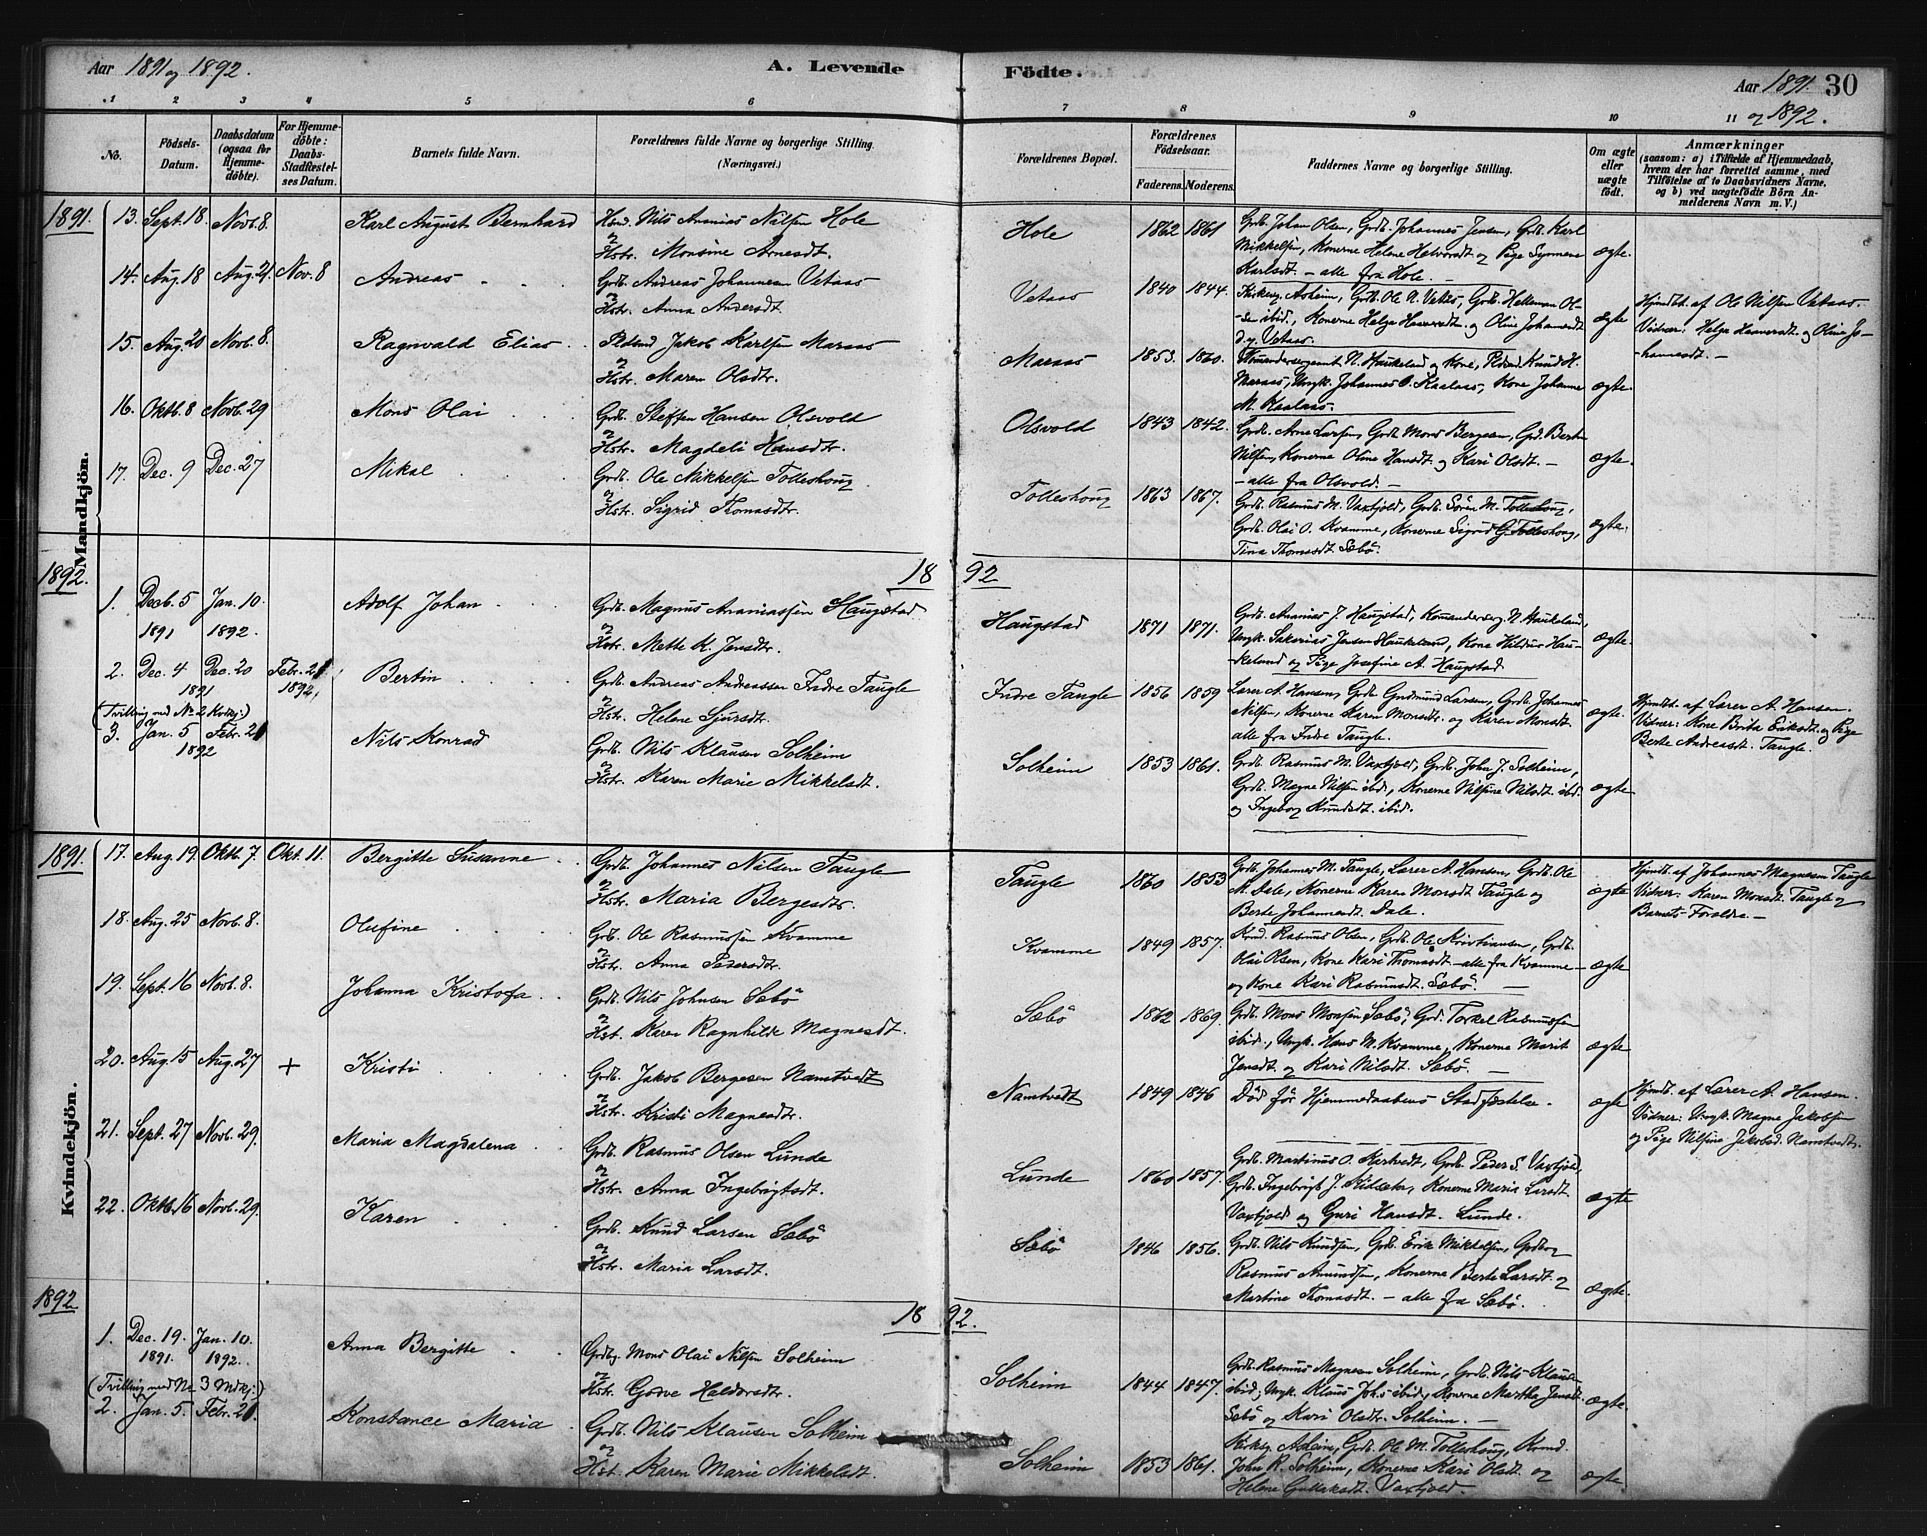 Aar 1891 og 1892.
A. Levende Födte.
Aar 1891 og 1892.
30
1 2 3 4 5 6 7 8 9 10 11
No.
Födsels-Datum.
Daabsdatum (ogsaa for Hjemme-döbte).
For Hjemme-döbte: Daabs-Stadfæstel-ses Datum.
Barnets fulde Navn.
Forældrenes fulde Navne og borgerlige Stilling. (Næringsvei.)
Forældrenes Bopæl.
Forældrenes Födselsaar.
Faderens. Moderens.
Faddernes Navne og borgerlige Stilling.
Om ægte eller uægte födt.
Anmærkninger
(saasom: a) i Tilfælde af Hjemmedaab, hvem der har forrettet samme, med Tilföielse af to Daabsvidners Navne, og b) ved uægtefödte Börn An-melderens Navn m. V.)
Mandkjön.
1891.
13. Sept. 18. Novb. 8. Karl August Bernhard Husd. Nils Ananias Nilsen Hole
og Hstr. Monsine Arnesdt.
Hole 1862 1861 Grdb. Johan Olsen, Grdb. Johannes Jensen, Grdb. Karl
Mikkelsen, Konerne Helene Helvordt. og Pige Synneve
Karlsdt. – alle fra Hole. – ægte.
14. Aug. 18 Aug. 21. Nov. 8 Andreas Grdb. Andreas Johannesen Vetaas
og Hstr. Anna Andersdt.
Vetaas 1840 1844. Kirkesg. Asheim, Grdb. Ole N. Vetaas, Grdb. Helleman Ol-
sen ibid., Konerne Helga Haavardt. og Oline Johannesdt.
Vetaas. ægte
Hjmdbt. af Ole Nilsen Vetaas.
Vidner: Helga Haaversdt. og Oline Jo-
hannesdt. –
15. Aug. 20 Novb. 8. Ragnvald Elias Jakob Karlsen Maraas
og Hstr. Maren Olsdtr.
Maraas 1853. 1860. Komandersergeant N. Haukeland og Kone, Knud H.
Maraas, Ungk. Johannes O. Kaalaas, Kone Johanne
M. Kaalaas. ægte.
16. Oktb. 8 Novb. 29 Mons Olai Grdb. Steffen Hansen Olsvold
og Hstr. Magdeli Hansdtr.
Olsvold 1843 1842. Grdb. Arne Larsen, Grdb. Mons Bergesen, Grd. Berte
Nilsen, Konerne Oline Hansdt. og Kari Olsdt. –
– alle fra Olsvold. – ægte.
17. Dec. 9 Dec. 27 Mikal Grdb. Ole Mikkelsen Tolleshoug
og Hstr. Sigrid Thomasdtr.
Tolleshoug 1863 1867. Grdb. Rasmus M. Vaxtjold, Grdb. Sören M. Tolleshoug,
Grdb. Olai O. Kvamme, Konerne Sigrid G. Tolleshoug,
Tina Thomasdt. Sæbö. ægte.
1892. 1892
1. Decb. 5 1891 Jan. 10. 1892. Adolf Johan Grdb. Magnus Ananiassen Haugstad
og Hstr. Mette K. Jensdtr.
Haugstad 1871 1871. Grdb. Ananias J. Haugstad, Komandersg. N. Haukeland,
Ungk. Sakarias Jensen Haukeland, Kone Hildur Hau-
keland og Pige Josefine A. Haugstad. ægte.
2. Dec. 4 Dec. 20 1891 Febr. 21 1892, Bertin Grdb. Andreas Andreassen Indre Taugle
(Tvilling med No 2 Kvkj:)
og Hstr. Helene Sjursdtr.
Indre Taugle 1856 1859 Lærer A. Hansen, Grdb. Gudmund Larsen, Grdb. Johannes
Nilsen, Konerne Karen Monsdtr. og Karen Monsdt.
alle fra Indre Taugle. ægte.
Hjmdbt. af Lærer A. Hansen.
Vidner: Kone Brita Eriksdt. og Pige
Berte Andreasdt. Taugle.
3. Jan. 5 Febr. 21 1892 Nils Konrad Grdb. Nils Klausen Solheim
og Hstr. Karen Marie Mikkelsdt.
Solheim 1853 1861. Grdb. Rasmus M. Vaxtjold, Grdb. John J. Solheim,
Grdb. Magne Nilsen ibid., Konerne Nilsine Nilsdt. ibid.
og Ingeborg Knudsdt. ibid. ægte
Kvindekjön.
1891.
17. Aug. 19. Oktb. 7. Okt. 11. Bergitte Susanne Grdb. Johannes Nilsen Taugle
og Hstr. Maria Bergesdtr.
Taugle 1860 1853 Grdb. Johannes M. Taugle, Lærer A. Hansen, Grdb. Ole
M. Dale, Konerne Karen Monsdt. Taugle og
Berte Johannesdt. Dale. ægte
Hjmdt. af Johannes Magnesen Taugle
Vidner: Karen Monsdt. Taugle og
Barnets Forældre –
18. Aug. 25 Novb. 8. Olufine Grdb. Ole Rasmussen Kvamme
og Hstr. Anna Pedersdtr.
Kvamme 1849 1857. Rasmus Olsen, Grdb. Ole Kristiansen, Grdb.
Olai Olsen, Kone Kari Thomasdt. – alle fra Kvamme –
og Kone Kari Rasmusdt. Sæbö. – ægte
19. Sept. 16 Novb. 8. Johanna Kristofa Grdb. Nils Johnsen Sæbö
og Hstr. Karen Ragnhilde Magnesdt.
Sæbö 1862 1869. Grdb. Mons Monsen Sæbö, Grd. Torkel Rasmussen
ibid., Ungk. Hans N. Kvamme, Konerne Marit
Jensdt. og Kari Nilsdt. Sæbö. – ægte
20. Aug. 15 Aug. 27 + Kristi Grdb. Jakob Bergesen Namtvedt
og Hstr. Kristi Magnesdtr.
Namtvedt 1849 1846 Död för Hjemmedaabens Stadfæstelse. ægte
Hjmdt. af Lærer A. Hansen.
Vidner: Ungk. Magne Jakobsen
og Pige Nilsine Jakobsd. Namtvedt.
21. Sept. 27 Novb. 29. Maria Magdalena Grdb. Rasmus Olsen Lunde
og Hstr. Anna Ingebrigtsdt.
Lunde 1860 1857. Grdb. Martinus O. Kartvedt, Grdb. Peder S. Vaxtjold,
Grdb. Ingebrigt J. Eidsæter, Konerne Maria Larsdt.
Vaxtjold og Guri Hansdt. Lunde. ægte
22. Oktb. 16 Novb. 29. Karen Grdb. Knud Larsen Sæbö
og Hstr. Maria Larsdt.
Sæbö 1846 1856. Grdb. Nils Knudsen, Grdb. Erik Mikkelsen, Grdbr.
Rasmus Amundsen, Konerne Berte Larsdt. og
Martine Thomasdt. – alle fra Sæbö. ægte.
1892 1892.
1. Dec. 19. 1891. Jan. 10. 1892. Anna Bergitte Grdbg. Mons Olai Nilsen Solheim
og Hstr. Gorve Haldorsdtr.
Solheim 1844 1847. Grdb. Rasmus Magnesen Solheim, Grdb. Nils Klaus.
ibid., Ungk. Klaus Joh.s ibid., Konerne Martha Jensdt.
Sæbö og Kari Olsdtr. Solheim. – ægte.
(Tvilling med No 3 Mdkj:)
2. Jan. 5. Febr. 21. Konstance Maria Grdb. Nils Klausen Solheim
og Hst. Karen Marie Mikkelsdt.
Solheim 1853 1861. Kirksg. Asheim, Grdb. Ole M. Tolleshoug,
John R. Solheim, Konerne Kari Olsdt. og
Helene Gullaksdt. Vaxtjold. ægte